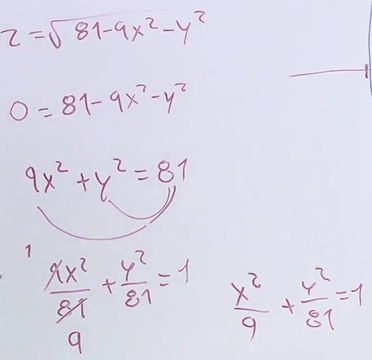 z = √81-9x²-y²
0 = 81-9x²-y²
9x² + y² = 81
1
9x²/81 + y²/81 = 1
9
x²/9 + y²/81 = 1